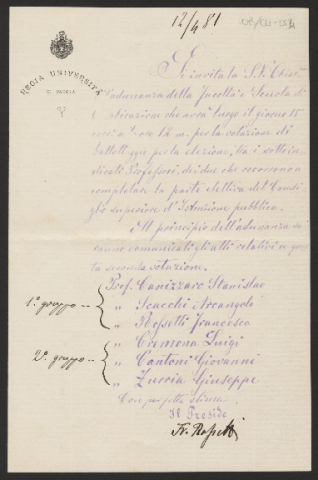 12/4 81
REGIA UNIVERSITÀ
DI PADOVA
Si invita la S.V. Chiar.ma
all'adunanza della Facoltà e Scuola di
Applicazione che avrà luogo il giorno 15
corr. a ore 12 m. per la votazione di
ballottaggio per la elezione, tra i sottoin-
dicati Professori, dei due che occorrono a
completare la parte elettiva del Consi-
glio superiore d'Istruzione pubblica.
Al principio dell'adunanza sa-
ranno comunicati gli atti relativi a que-
sta seconda votazione.
1° gruppo Prof. Canizzaro Stanislao
" Scacchi Arcangelo
" Rossetti Francesco
2° gruppo " Cremona Luigi
" Cantoni Giovanni
" Zuccia Giuseppe
Con perfetta stima
Il Preside
Fr. Rossetti